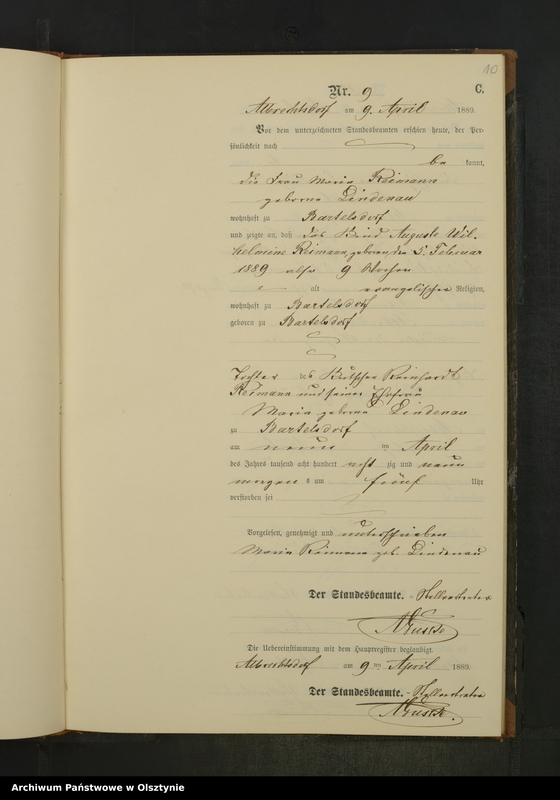 10
Nr. 9 C.
Albrechtsdorf am 9. April 1889.
Vor dem unterzeichneten Standesbeamten erschien heute, der Per-
sönlichkeit nach
be kannt,
die Frau Maria Reimann
geborne Lindenau
wohnhaft zu Bartelsdorf
und zeigte an, daß das Kind Auguste Wil-
helmine Reimann, geboren den 5. Februar
1889 also 9 Wochen
alt evangelischer Religion,
wohnhaft zu Bartelsdorf
geboren zu Bartelsdorf
Tochter des Kutscher Reinhardt
Reimann und seiner Ehefrau
Maria geborne Lindenau
zu Bartelsdorf
am neun ten April
des Jahres tausend acht hundert acht zig und neun
morgens um fünf Uhr
verstorben sei
Vorgelesen, genehmigt und unterschrieben
Maria Reimann geb. Lindenau
Der Standesbeamte. Stellvertreter
Die Uebereinstimmung mit dem Hauptregister beglaubigt.
Albrechtsdorf am 9 ten April 1889.
Der Standesbeamte. Stellvertreter
Archiwum Państwowe w Olsztynie